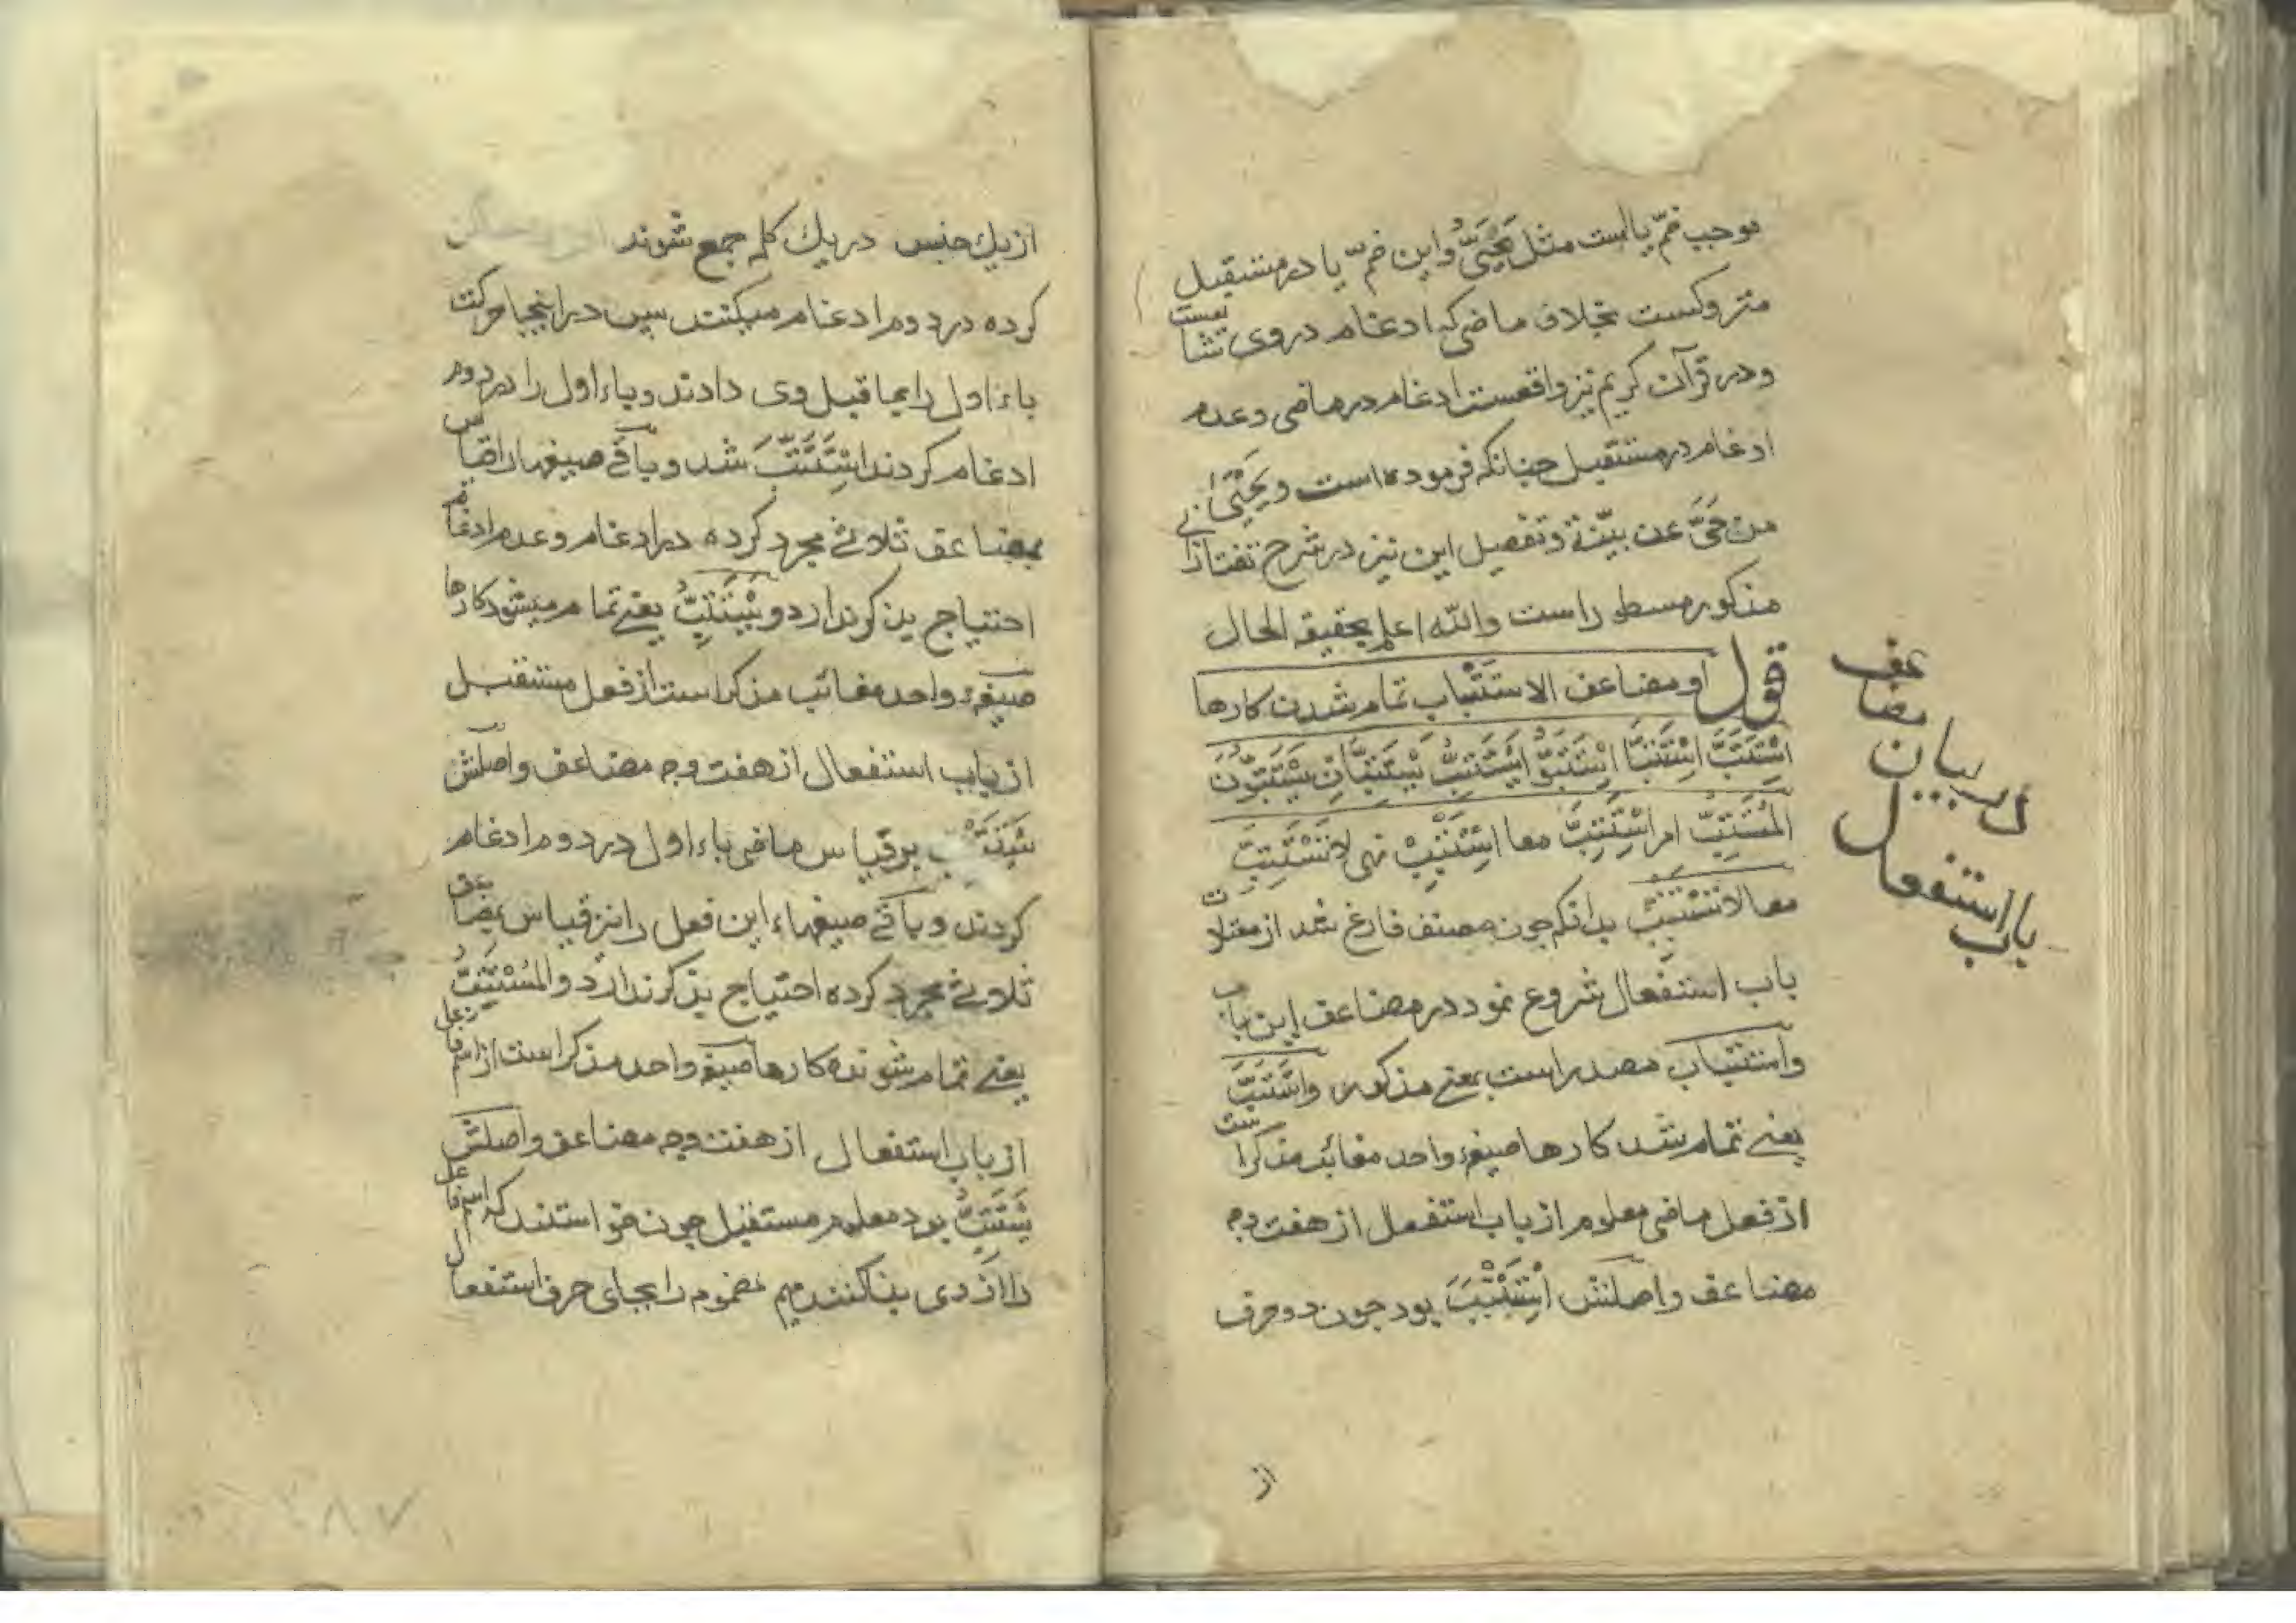 موجب ضمّ یا است مثل یَحْيَیُ و این ضمّ یا در مستقبل
متروکست بخلاف ماضی که ادغام در وی شایعست
و در قرآن کریم نیز واقعست ادغام در ماضی و عدم
ادغام در مستقبل چنانکه فرموده است و یَحْیَیٰ
من حَیَّ عن بیّنة و تفصیل این نیز در شرح تفتازانی
مذکور و مسطور است والله اعلم بحقیقة الحال
قوله و مضاعف الاستتباب تمام شدن کارها
اِسْتَتَبَّ اِسْتَتَبَّا اِسْتَتَبُّوْا یَسْتَتِبُّ یَسْتَتِبَّانِ یَسْتَتِبُّوْنَ
المُسْتَتِبُّ امر اِسْتَتِبَّ معا اِسْتَتْبِبْ نهی لا تَسْتَتِبَّ
معا لا تَسْتَتْبِبْ بدانکه چون مصنف فارغ شد از معتلات
باب استفعال شروع نمود در مضاعف این باب
و استتباب مصدر است بمعنی مذکور و اِسْتَتَبَّ
یعنی تمام شد کارها صیغهٔ واحد مغائب مذکر است
از فعل ماضی معلوم از باب استفعل از هفت وجه
مضاعف و اصلش اِسْتَتْبَبَ بود چون دو حرف
در بیان مضاعف
باب استفعال
از
از یك جنس در یك کلمه جمع شوند
کرده در دوم ادغام میکنند پس در اینجا حرکت
باء اول را بما قبل وی دادند و باء اول را در دوم
ادغام کردند اِسْتَتَبَّ شد و باقی صیغها را قیاس
بمضاعف ثلاثی مجرد کرده در ادغام و عدم ادغام
احتیاج بذکر ندارد و یَسْتَتِبُّ یعنی تمام میشود کارها
صیغهٔ واحد مغائب مذکر است از فعل مستقبل
از باب استفعال از هفت وجه مضاعف و اصلش
یَسْتَتْبِبُ بر قیاس ماضی باء اول در دوم ادغام
کردند و باقی صیغهاء این فعل را نیز قیاس بمضاعف
ثلاثی مجرد کرده احتیاج بذکر ندارد و المُسْتَتِبُّ
یعنی تمام شونده کارها صیغه واحد مذکر است از اسم فاعل
از باب استفعال از هفت وجه مضاعف و اصلش
یَسْتَتِبُّ بود معلوم مستقبل چون خواستند که اسم فاعل
را از وی بنا کنند میم مضموم را بجای حرف استفعال